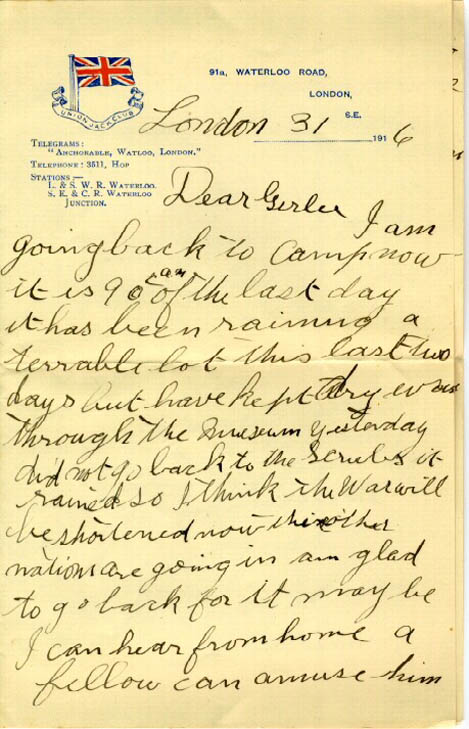 91a, WATERLOO ROAD,
LONDON,
S.E.
UNION JACK CLUB
London 31 1916
TELEGRAMS:
"ANCHORABLE, WATLOO, LONDON."
TELEPHONE: 3511, HOP
STATIONS:
L. & S. W. R. WATERLOO.
S. E. & C. R. WATERLOO
JUNCTION.
Dear I am
going back to Camp now
it is 9 am of the last day
it has been raining a
terrable lot this last two
days but have kept dry
through the Museum yesterday
did not go back to the Scrubs it
rained so I think the War will
be shortened now other
nations are going in am glad
to go back for it may be
I can hear from home a
fellow can amuse him